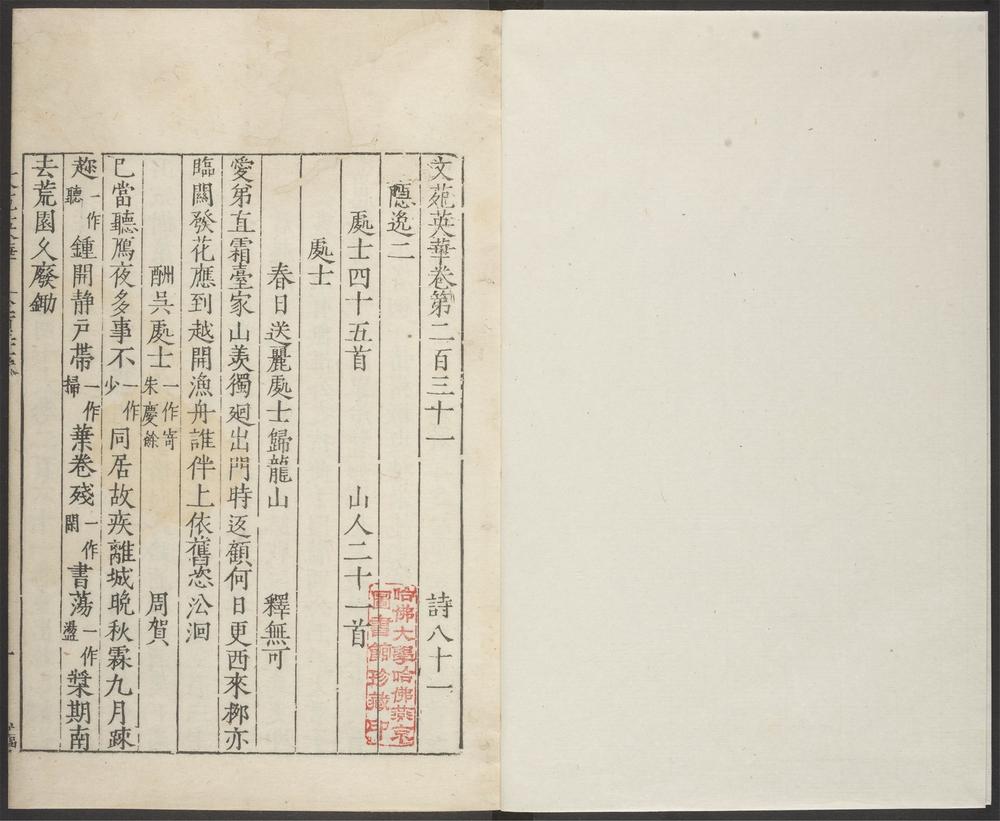 文苑英華卷第二百三十一 詩八十一
隱逸二
處士四十五首 山人二十一首
處士
春日送麗處士歸龍山 釋無可
愛弟直霜臺家山羨獨廻出門時返顧何日更西來柳亦
臨關發花應到越開漁舟誰伴上依舊恣㳂洄
酬吳處士一作寄朱慶餘 周賀
已當聽鴈夜多事不一作少同居故疾離城晚秋霖九月踈
趂一作聽鍾開静戶帶一作掃葉卷殘一作閑書蕩一作盪槳期南
去荒園乆廢鋤
哈佛大學哈佛燕京
圖書館珍藏印